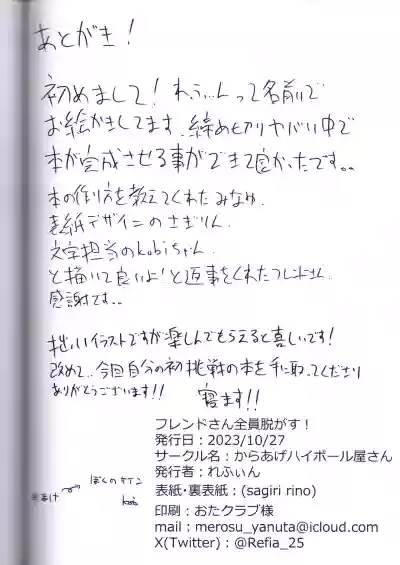 あとがき!
初めまして!れふぃんって名前で
お絵かきしてます.締め切りヤバい中で
本が完成させる事ができて良かったです。。
本の作り方を教えてくれたみなゆ.
表紙デザインのさぎりん.
文字担当のkobiちゃん.
と描いて良いよ!と返事をくれたフレンドさん.
感謝です。。
拙いイラストですが楽しんでもらえると嬉しいです!
改めて..今回自分の初挑戦の本を手に取ってくださり
ありがとうございます!!
寝ます!!
フレンドさん全員脱がす!
発行日:2023/10/27
サークル名:からあげハイボール屋さん
発行者:れふぃん
表紙・裏表紙:(sagiri rino)
印刷:おたクラブ様
mail:merosu_yanuta@icloud.com
X(Twitter):@Refia_25
ぼくのサイン